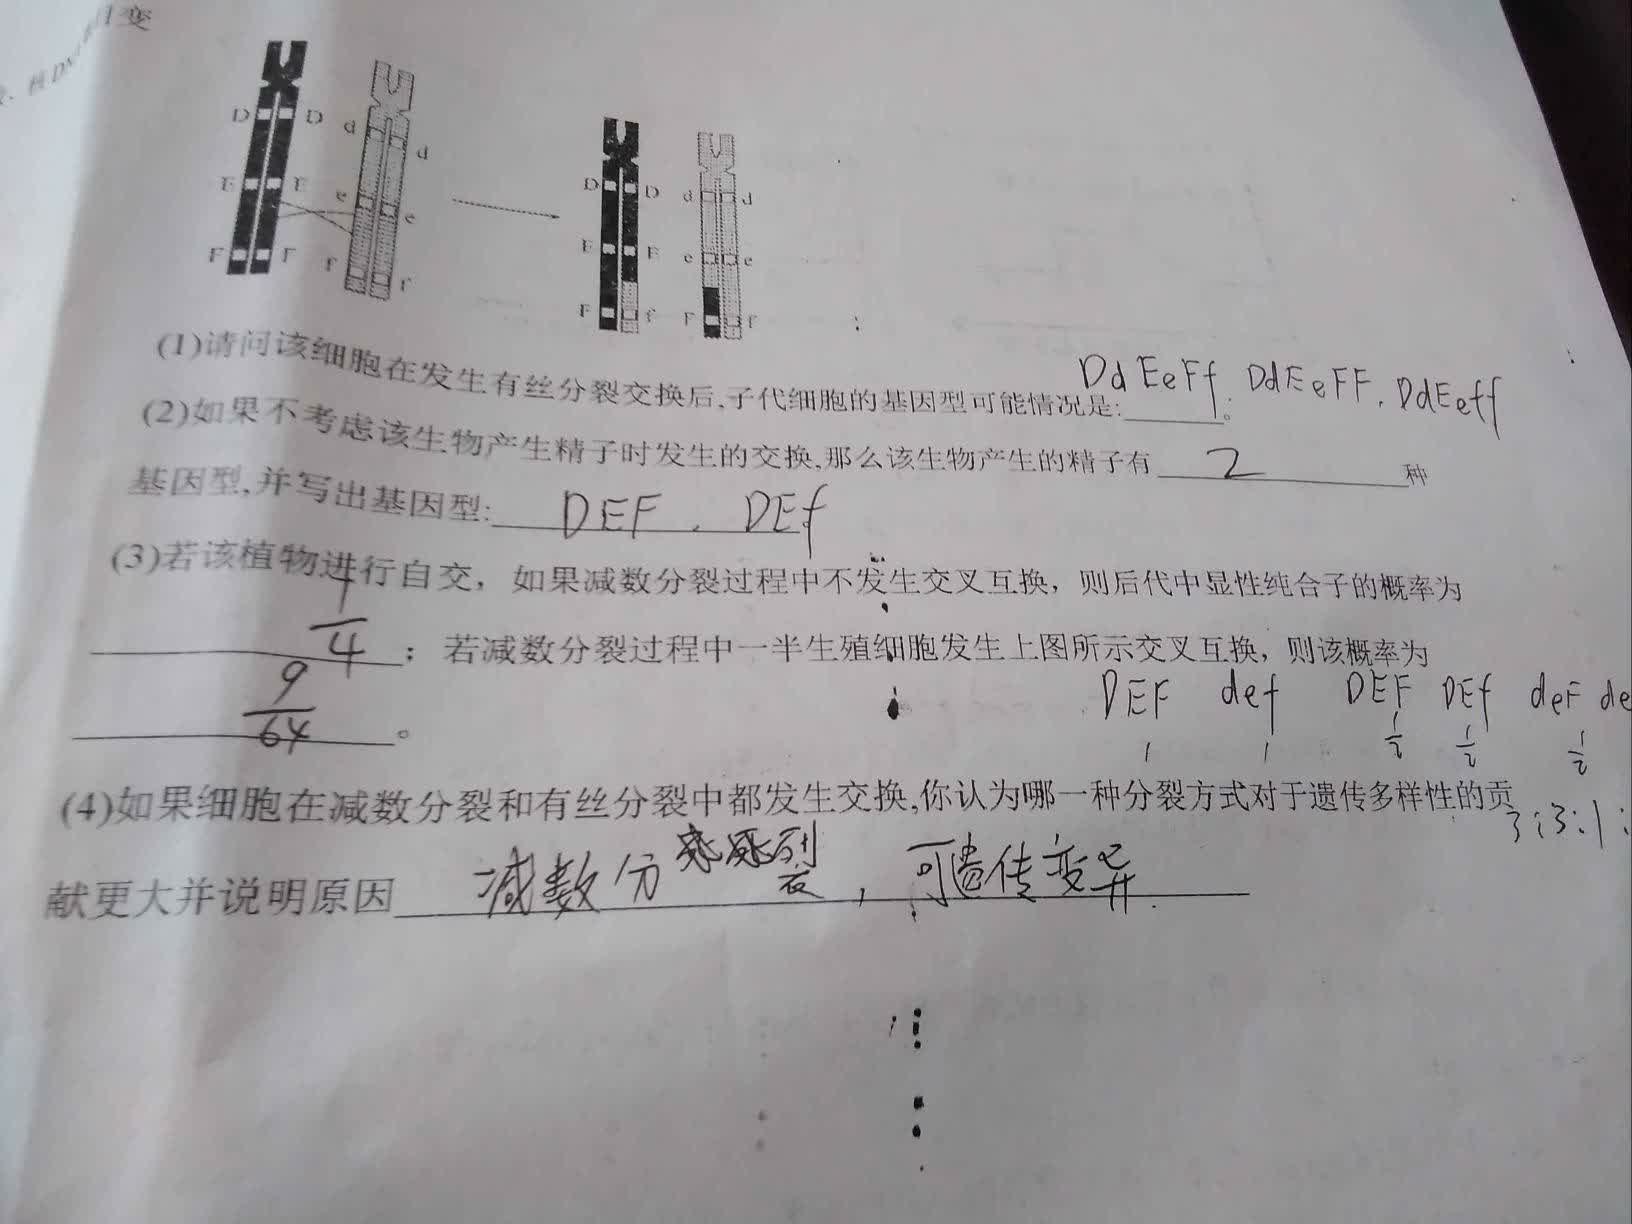 变
D D d d
E E e e
F F f f
D D d d
E E e e
F f F f
(1)请问该细胞在发生有丝分裂交换后,子代细胞的基因型可能情况是: DdEeFf, DdEeFF, DdEeff 。
(2)如果不考虑该生物产生精子时发生的交换,那么该生物产生的精子有 2 种
基因型,并写出基因型: DEF , DEf
(3)若该植物进行自交，如果减数分裂过程中不发生交叉互换，则后代中显性纯合子的概率为
1/4 ；若减数分裂过程中一半生殖细胞发生上图所示交叉互换，则该概率为
9/64 。
DEF def DEF DEf deF de
1 1 1/2 1/2 1/2
3:3:1:
(4)如果细胞在减数分裂和有丝分裂中都发生交换,你认为哪一种分裂方式对于遗传多样性的贡
献更大并说明原因 减数分裂，可遗传变异.